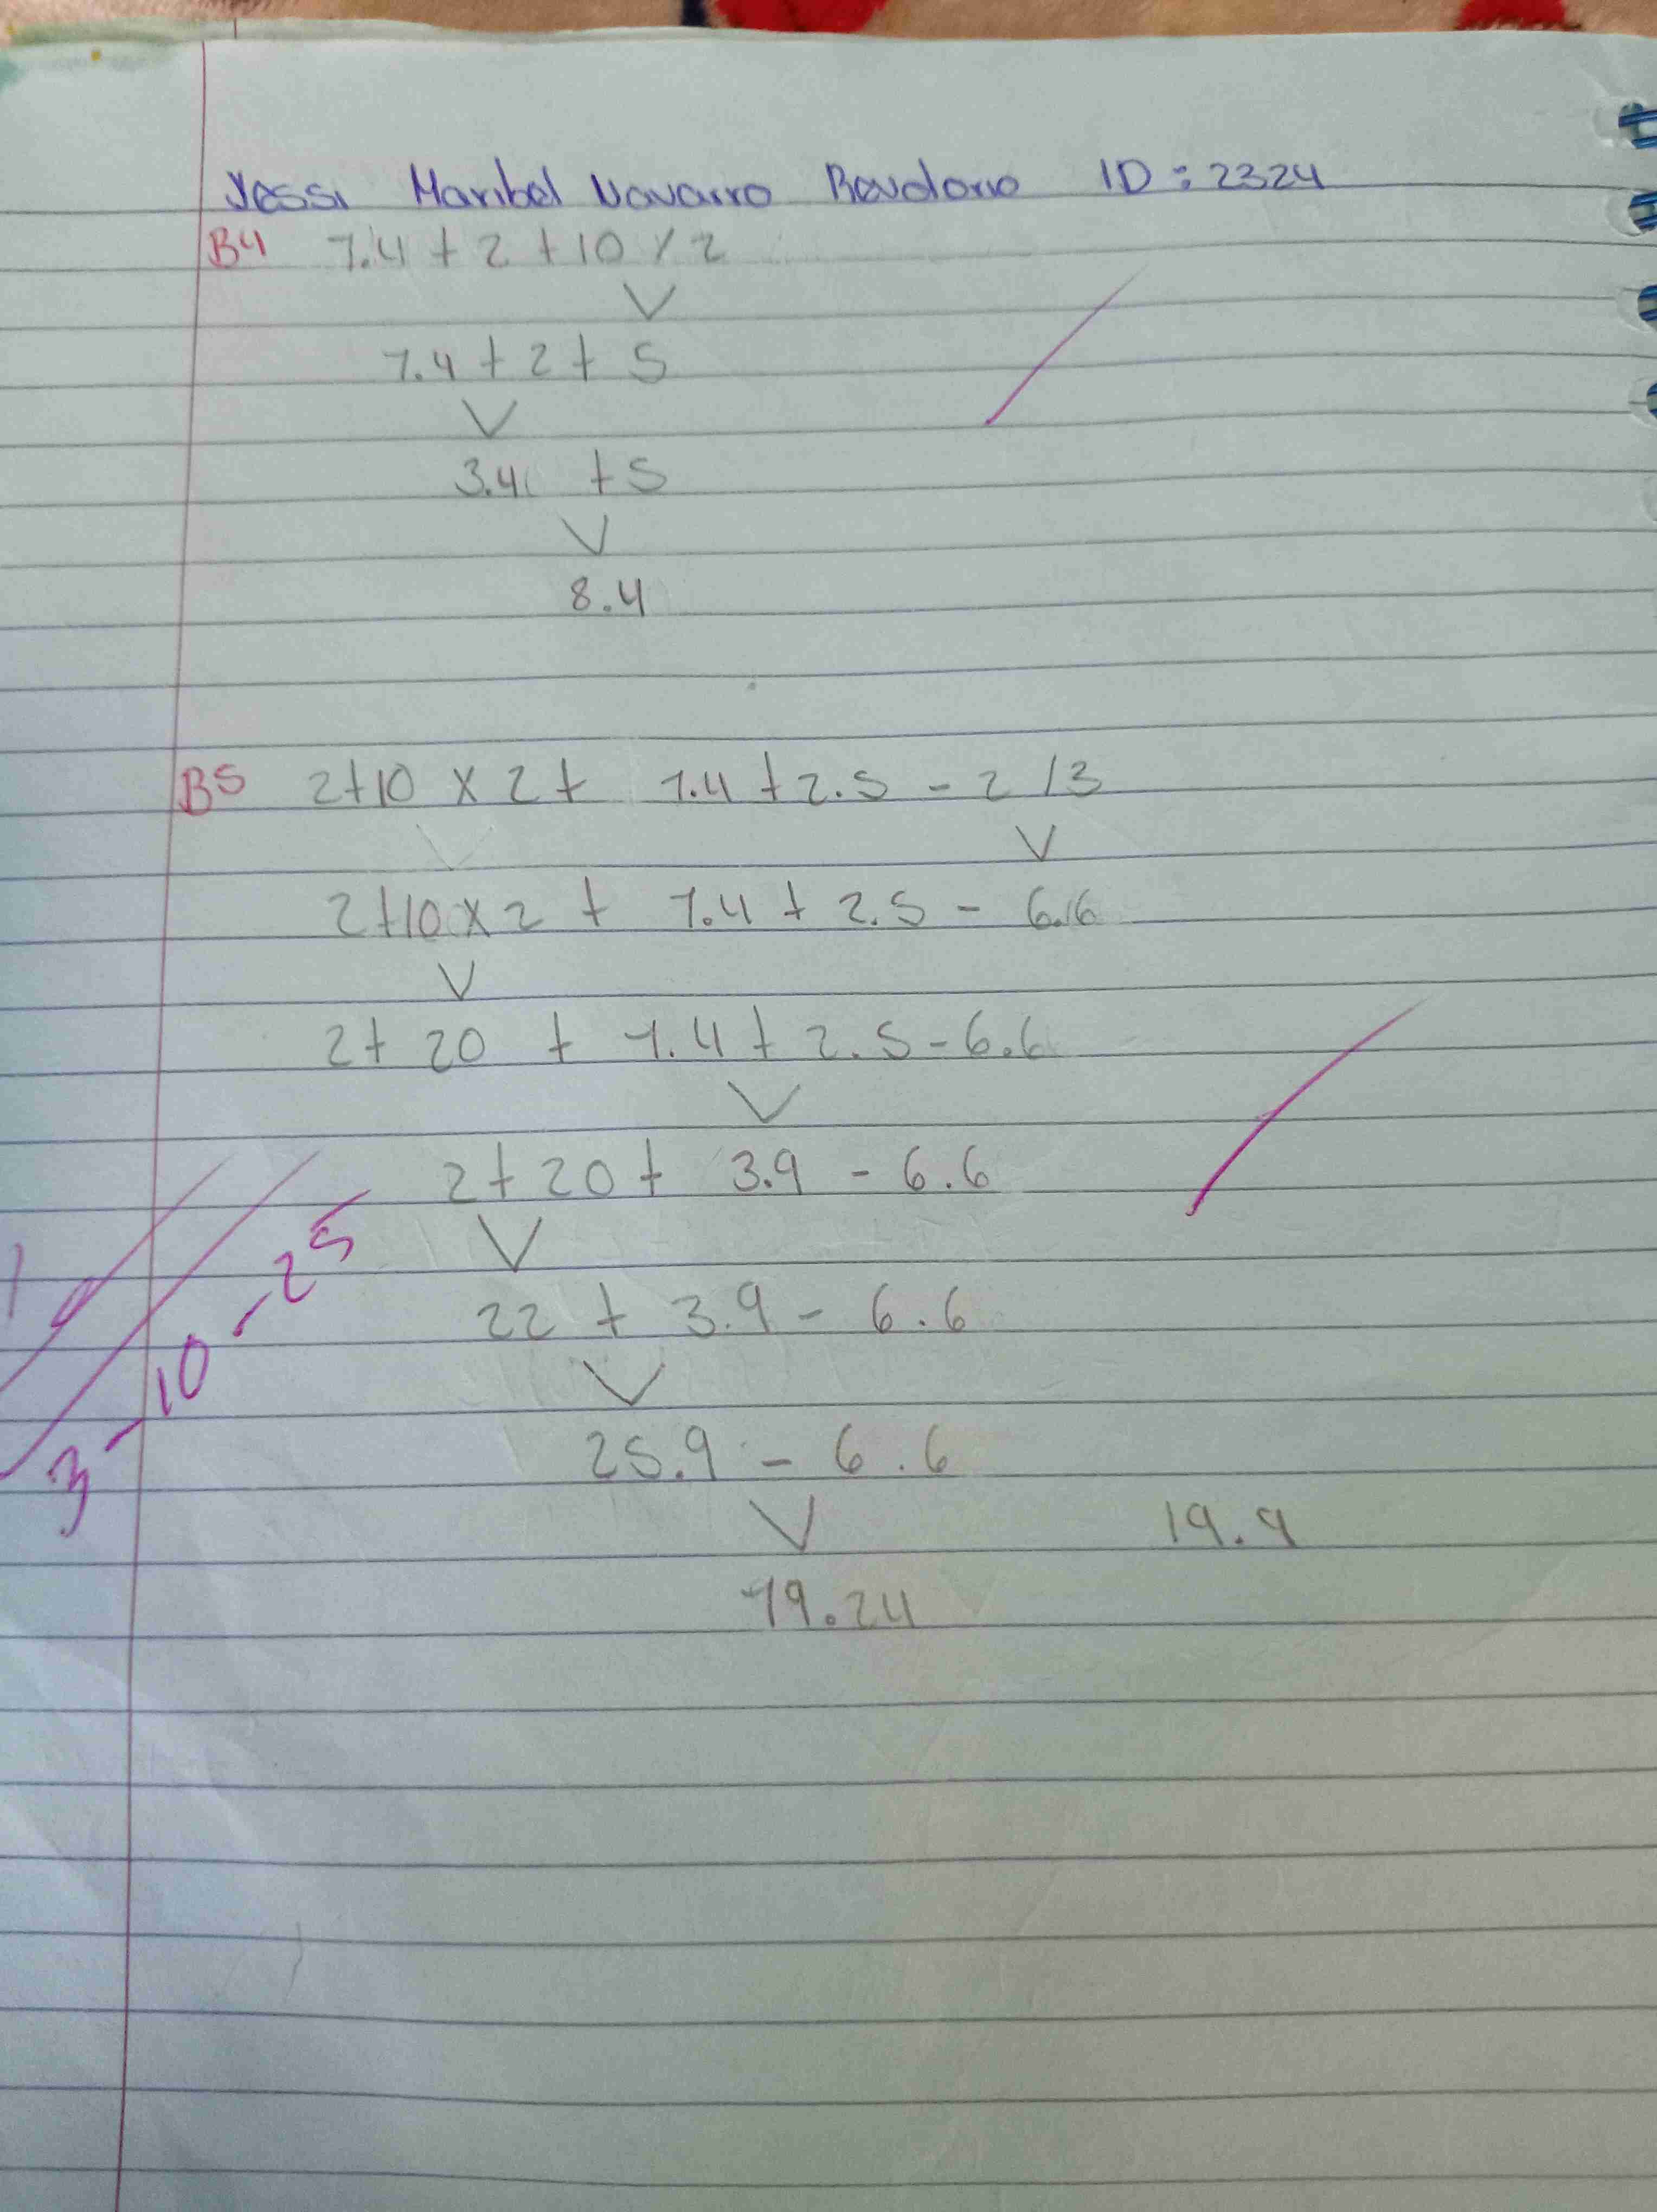 Yessi Maribel Navarro ID: 2324
B4 1.4 + 2 + 10 / 2
1.4 + 2 + 5
3.4 + 5
8.4
B5 2+10 x 2 + 1.4 + 2.5 - 2 / 3
2+10 x 2 + 1.4 + 2.5 - 6.6
2+ 20 + 1.4 + 2.5 - 6.6
2+ 20 + 3.9 - 6.6
22 + 3.9 - 6.6
25.9 - 6.6
19.9
19.24
3-10-25